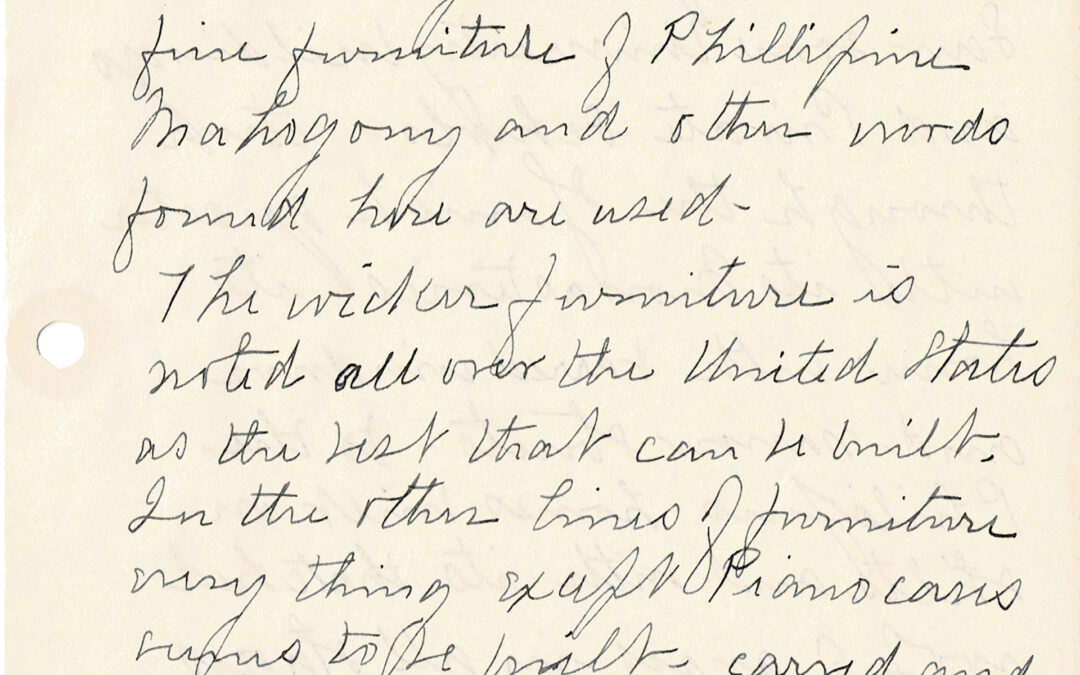 fine furniture of Phillipine
Mahogony and other woods
found here are used-
The wicker furniture is
noted all over the United States
as the best that can be built.
In the other lines of furniture
every thing except Piano cases
seems to be built- carved and